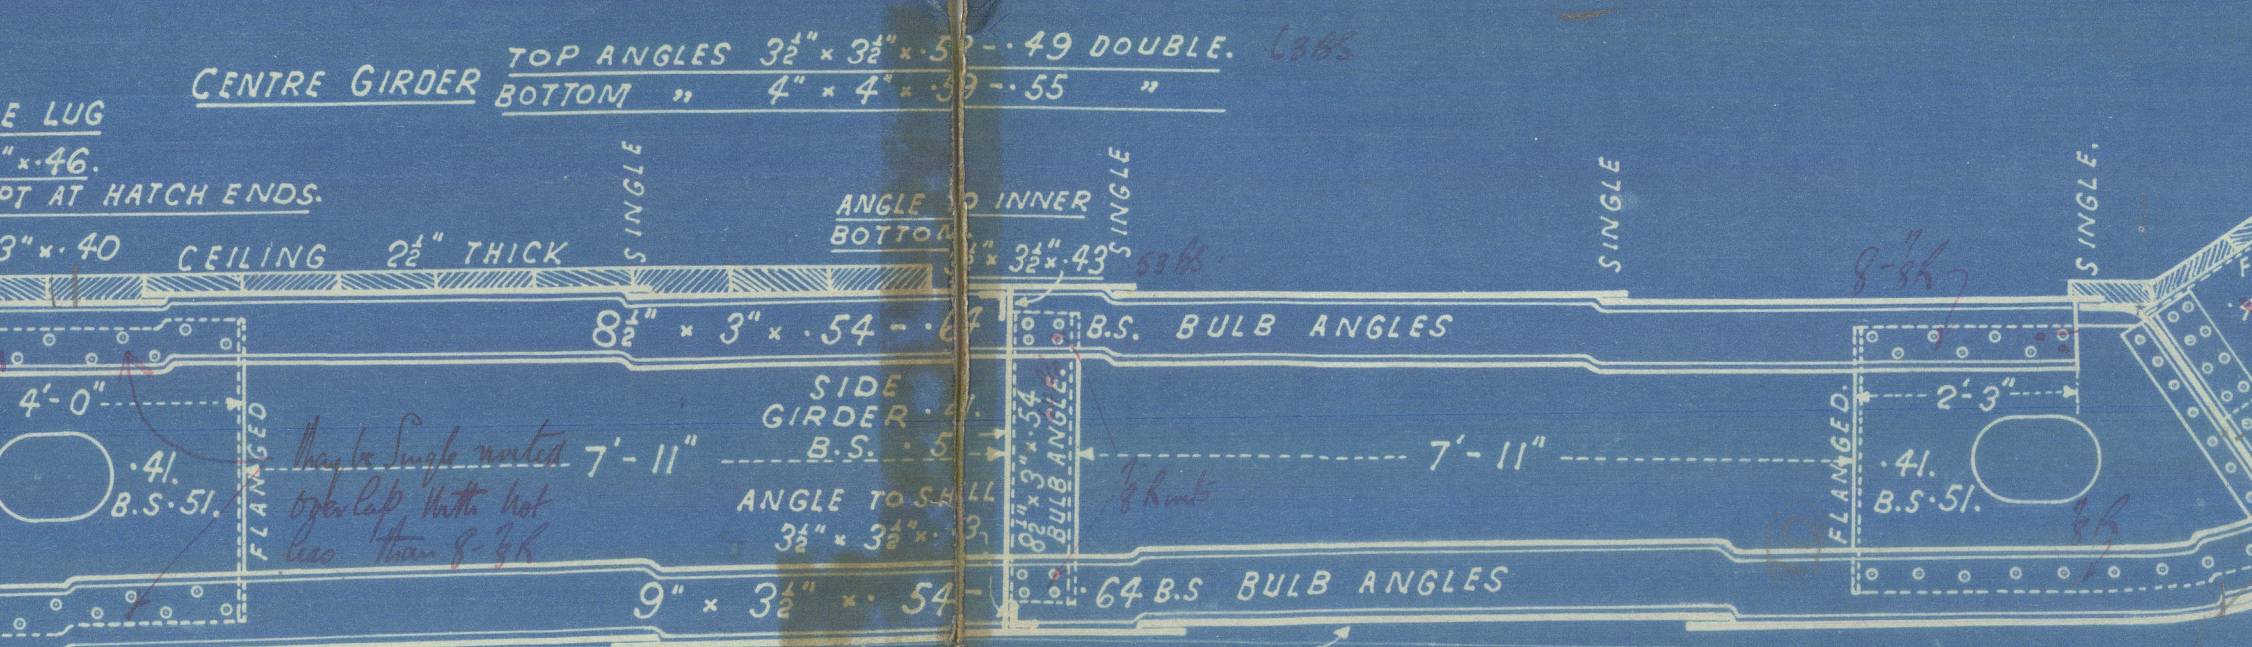 CENTRE GIRDER
TOP ANGLES 3½" × 3½" × ·59 - ·49 DOUBLE. 63 BS
BOTTOM „ 4" × 4" × ·59 - ·55 „
E LUG
" × ·46.
PT AT HATCH ENDS.
3" × ·40
CEILING 2½" THICK
SINGLE
ANGLE TO INNER
BOTTOM
3½" × 3½" × ·43
53 BS
SINGLE
SINGLE
SINGLE.
8-⅞R
8½" × 3" × ·54 - ·64 B.S. BULB ANGLES
4'-0"
FLANGED
·41.
B.S·51.
May be Single riveted
overlap with not
less than 8-⅞R
7'-11"
SIDE
GIRDER ·41.
B.S. ·5
ANGLE TO SHELL
3½" × 3½" ×
8½" × 3" × ·54
BULB ANGLE.
⅞ Rivets
7'-11"
FLANGED.
2'-3"
·41.
B.S·51.
⅞R
9" × 3½" × ·54 - ·64 B.S BULB ANGLES